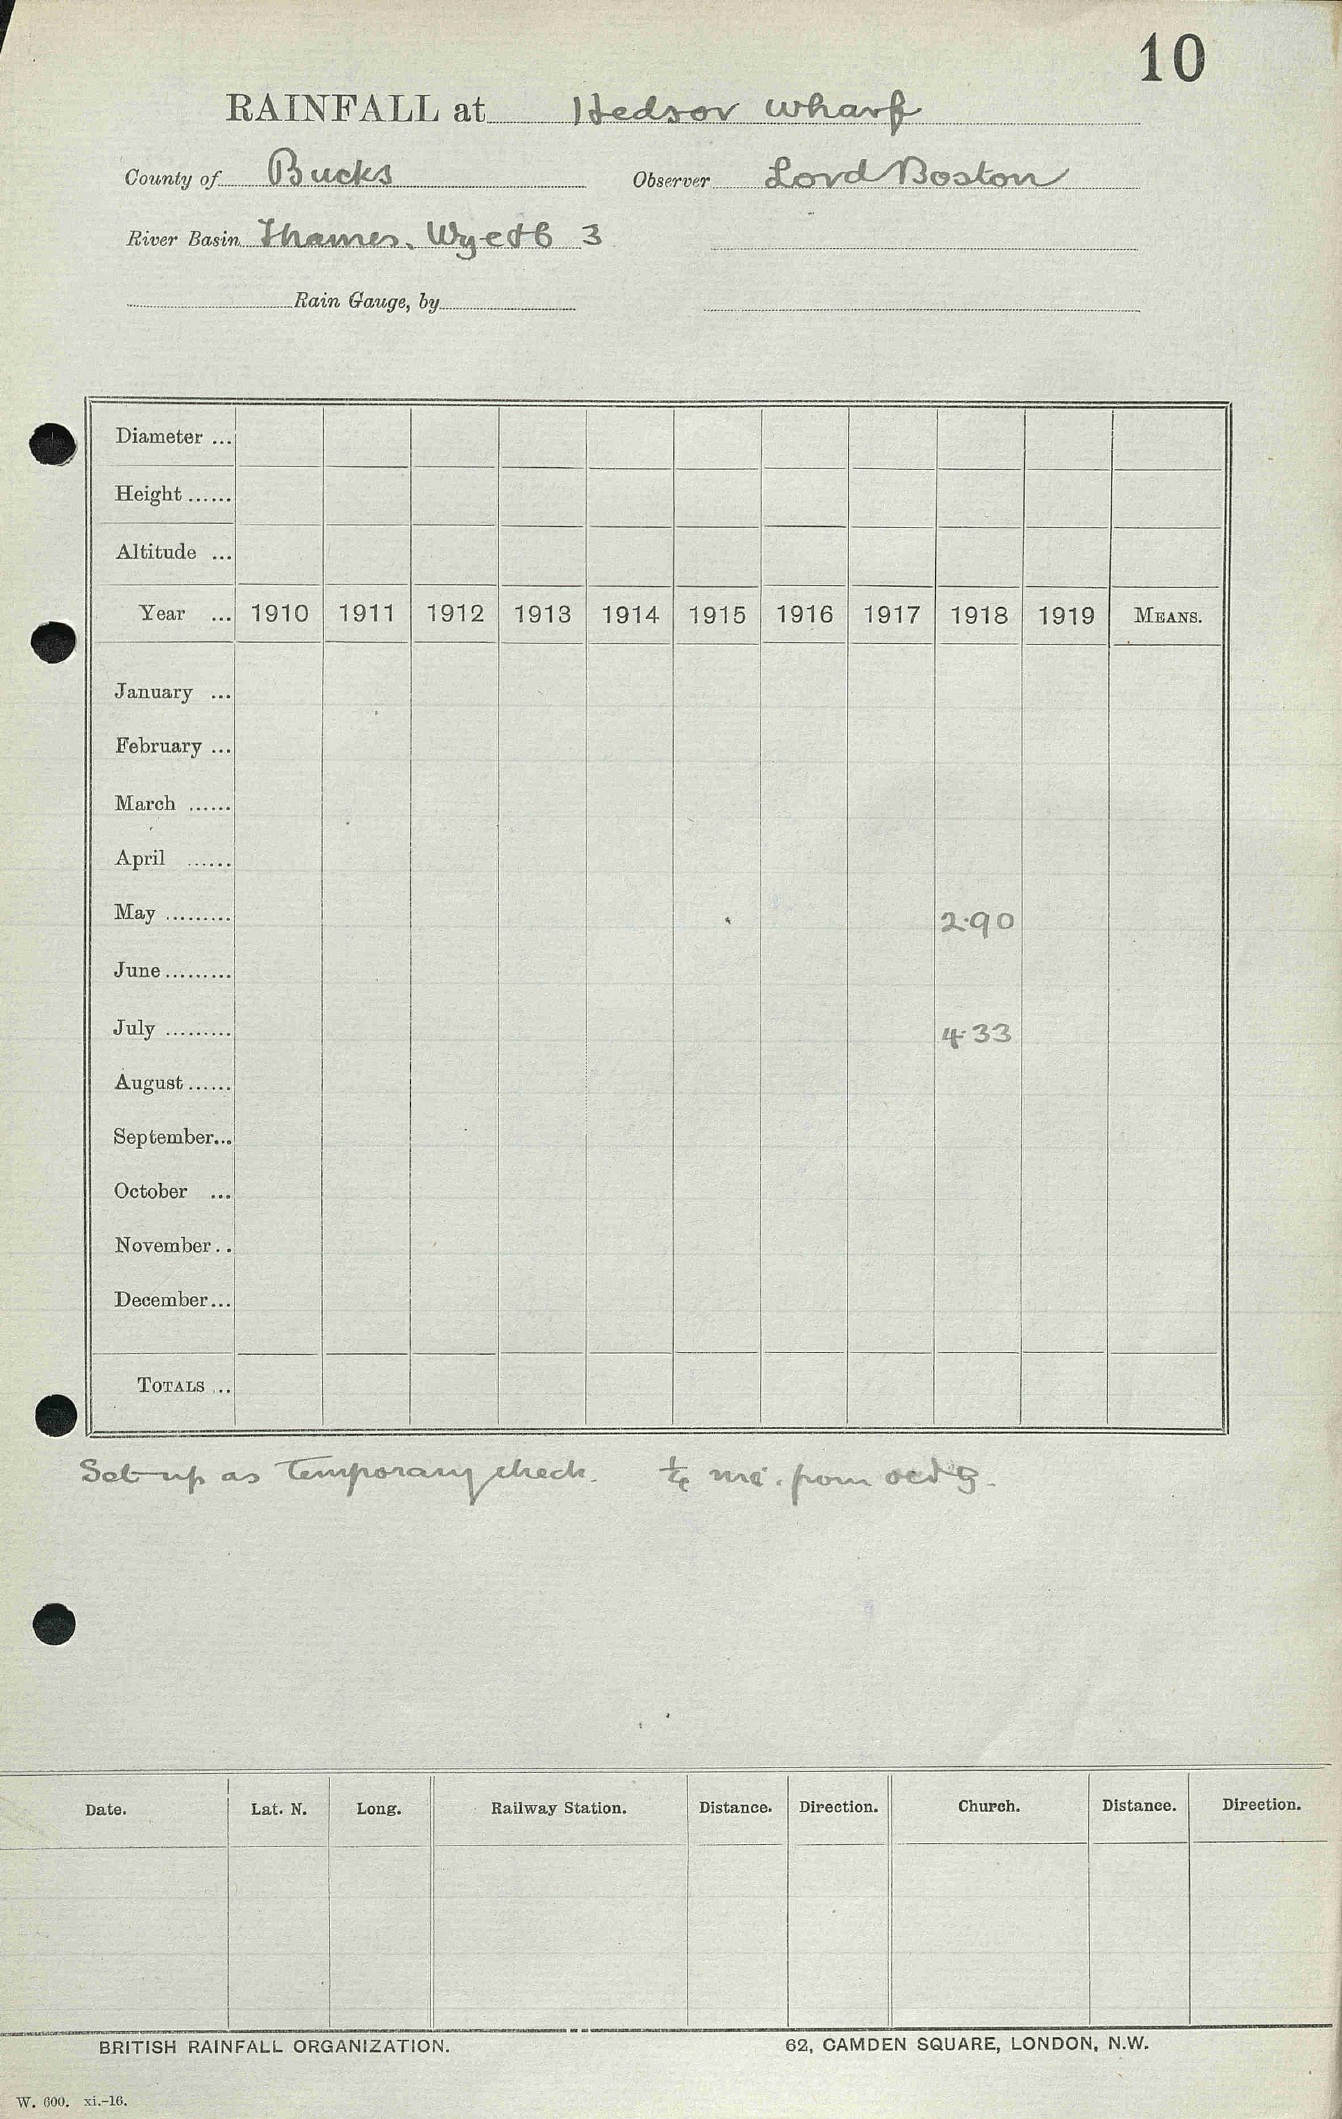 10
RAINFALL at Hedsor Wharf
County of Bucks Observer Lord Boston
River Basin Thames. Wye & 3
Rain Gauge, by
Diameter ...
Height ......
Altitude ...
Year ... 1910 1911 1912 1913 1914 1915 1916 1917 1918 1919 MEANS.
January ...
February ...
March ......
April ......
May ......... 2.90
June .........
July ......... 4.33
August ......
September...
October ...
November..
December...
TOTALS ...
Set up as temporary check. ¼ mi. from ord g.
Date. Lat. N. Long. Railway Station. Distance. Direction. Church. Distance. Direction.
BRITISH RAINFALL ORGANIZATION. 62, CAMDEN SQUARE, LONDON, N.W.
W. 600. xi.-16.